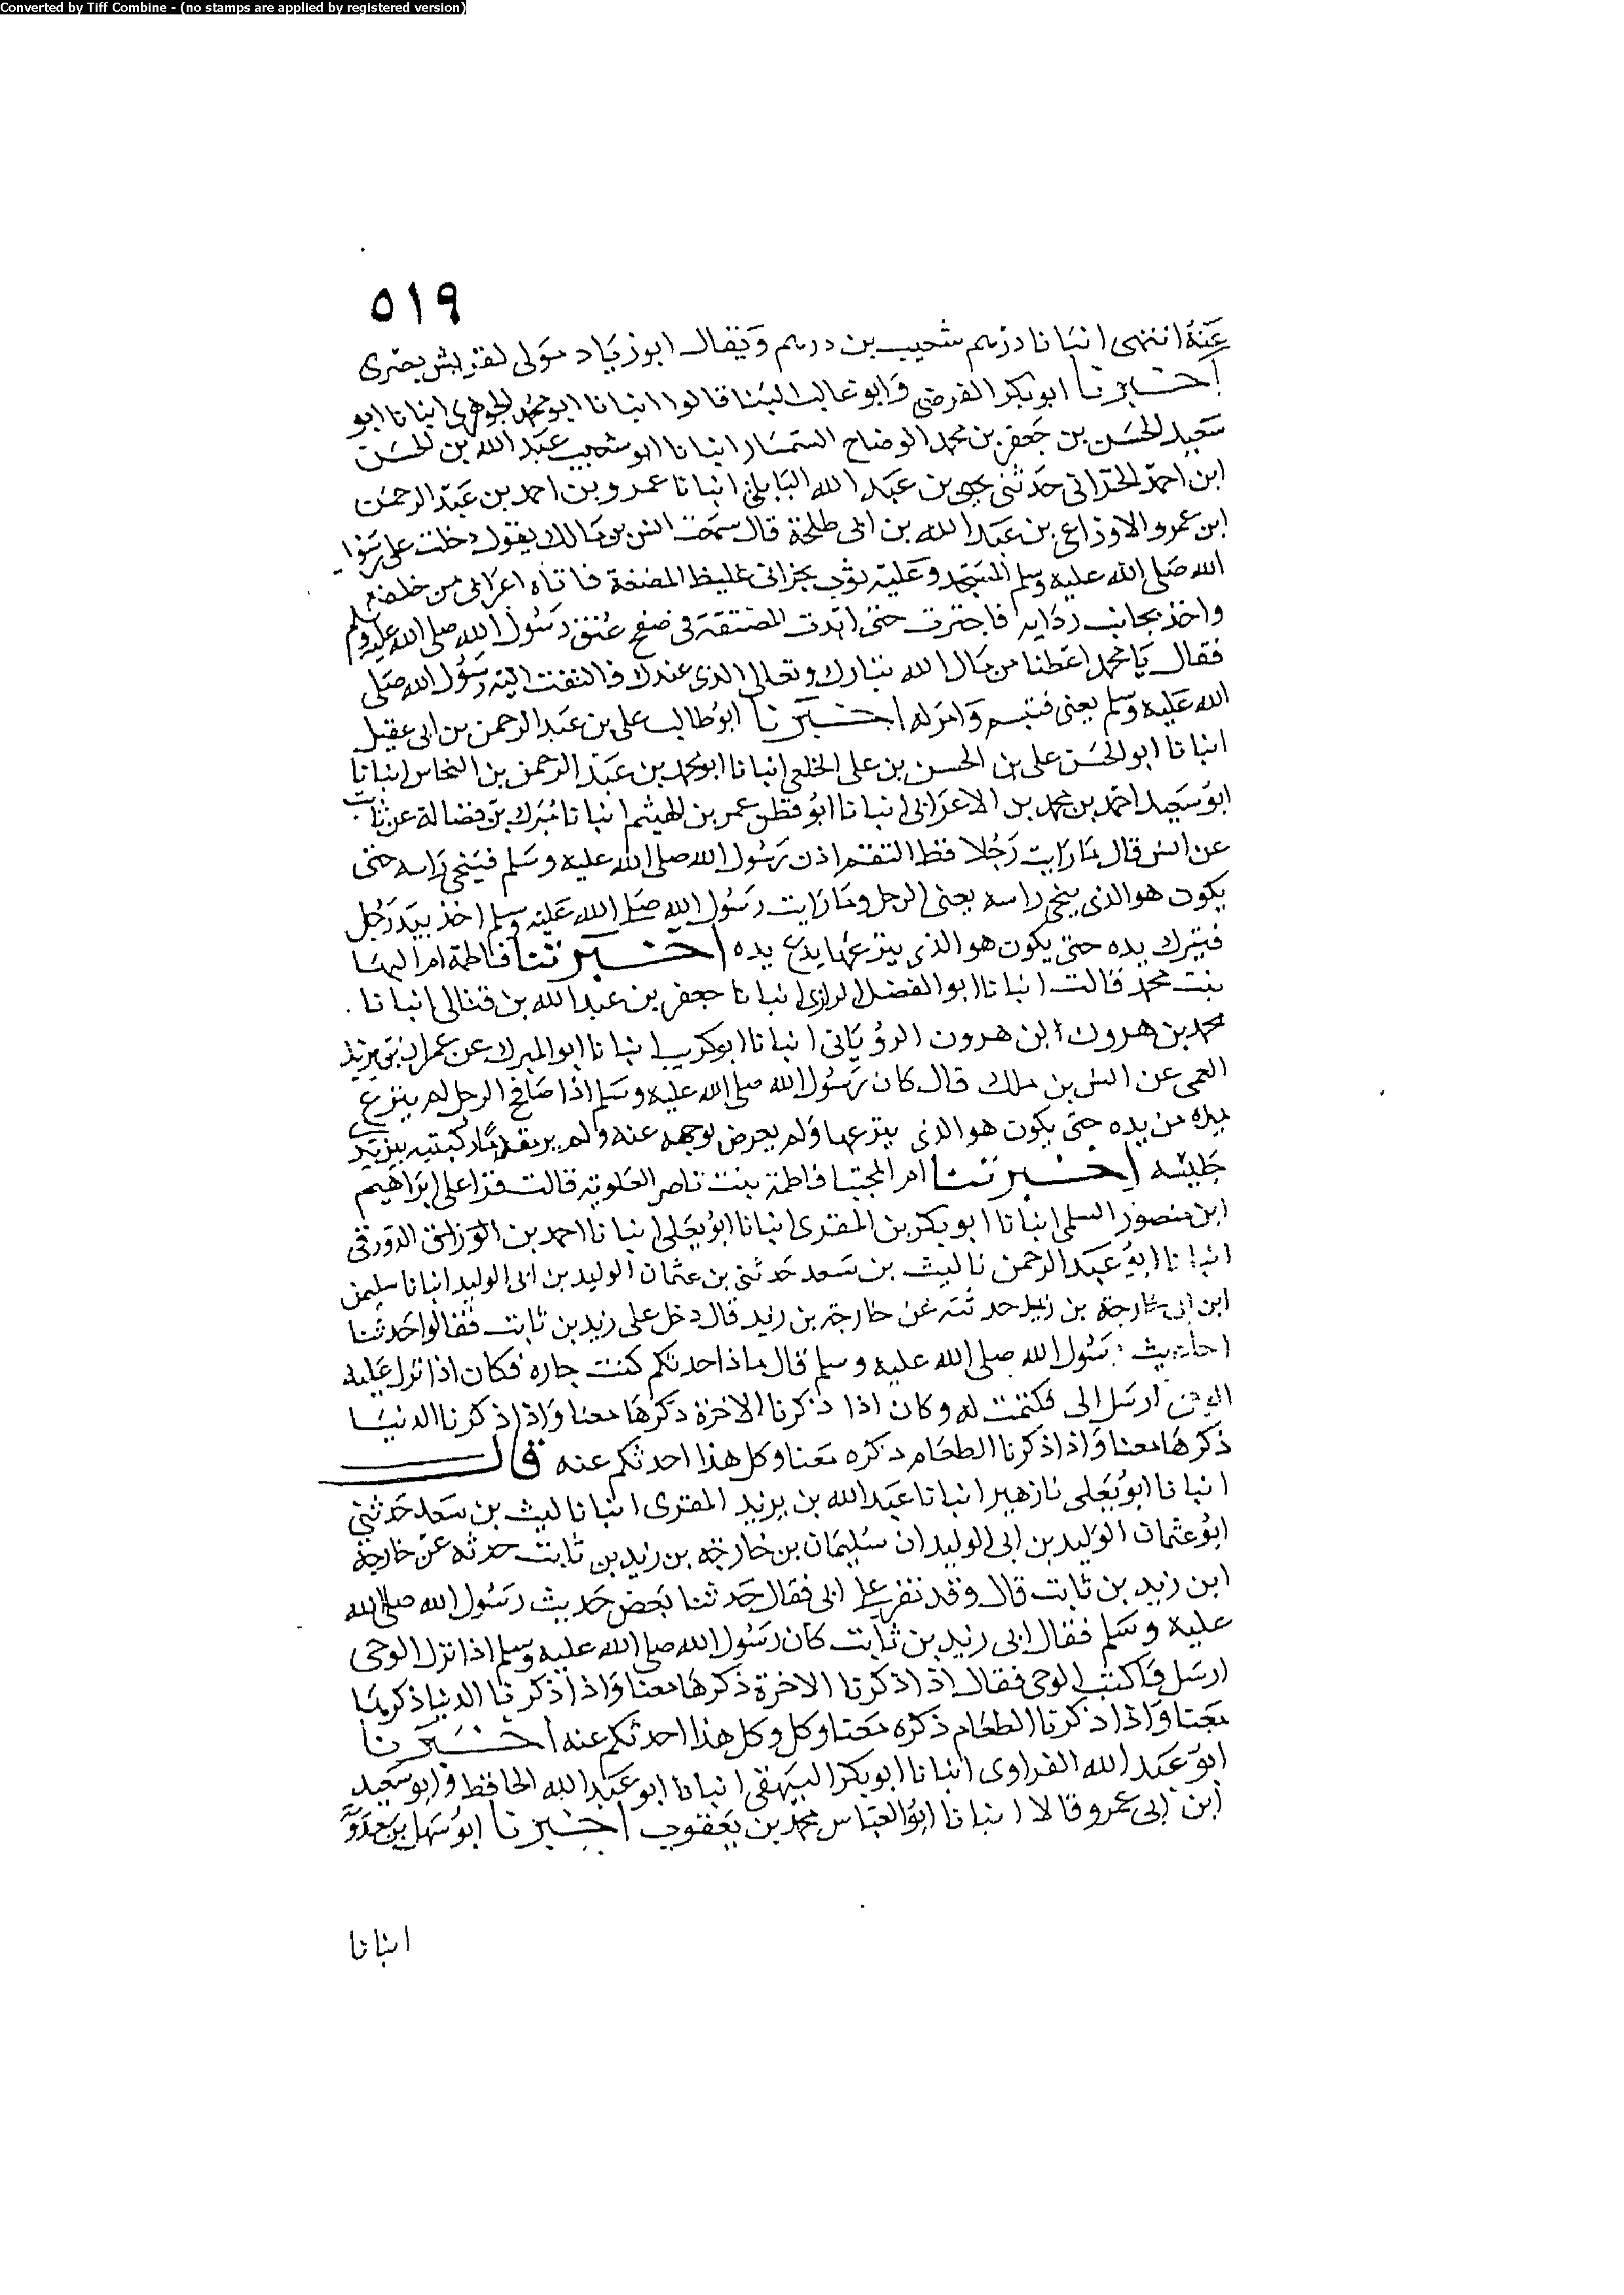 Converted by Tiff Combine - (no stamps are applied by registered version)
٥١٩
عنه انتهى انبانا درهم شعيب بن درهم ويقال ابو زياد مولى لقريش بصرى
اخبرنا ابو بكر الفرضى وابو غالب البنا قالوا انبانا ابو محمد الجوهرى انبانا ابو
سعيد الحسن بن جعفر بن محمد الوضاح السمسار انبانا ابو شعيب عبد الله بن الحسن
ابن احمد الحرانى حدثنى يحيى بن عبد الله البابلى انبانا عمرو بن احمد بن عبد الرحمن
ابن عمرو الاوزاعى بن عبد الله بن ابى طلحة قال سمعت انس بن مالك يقول دخلت على رسول
الله صلى الله عليه وسلم المسجد وعليه ثوب نجرانى غليظ الصنفة فاتاه اعرابى من خلفه
واخذ بجانب ردايه فاجترت حتى اثرت الصنفة فى صفح عنق رسول الله صلى الله عليه وسلم
فقال يا محمد اعطنا من مال الله تبارك وتعالى الذى عندك فالتفت اليه رسول الله صلى
الله عليه وسلم يعنى فتبسم وامر له اخبرنا ابو طالب على بن عبد الرحمن بن ابى عقيل
انبانا ابو الحسن على بن الحسن بن على الخلعى انبانا ابو محمد بن عبد الرحمن بن النحاس انبانا
ابو سعيد احمد بن محمد بن الاعرابى انبانا ابو قطن عمر بن الهيثم انبانا مبرك بن فضالة عن ثابت
عن انس قال ما رايت رجلا قط التقم اذن رسول الله صلى الله عليه وسلم فينحى راسه حتى
يكون هو الذى ينحى راسه يعنى الرجل وما رايت رسول الله صلى الله عليه وسلم اخذ بيد رجل
فيترك يده حتى يكون هو الذى ينزعها يدع يده اخبرتنا فاطمة ام البها
بنت محمد قالت انبانا ابو الفضل الرازى انبانا جعفر بن عبد الله بن قنالى انبانا
محمد بن هرون ابن هرون الرويانى انبانا ابو كريب انبانا ابو المبرك عن عمران بن يزيد
العمى عن انس بن ملك قال كان رسول الله صلى الله عليه وسلم اذا صافح الرجل لم ينزع
يده من يده حتى يكون هو الذى ينزعها ولم يعرض بوجهه عنه ولم ير مقدما ركبتيه بين يدى
جليسه اخبرتنا ام المجتبا فاطمة بنت ناصر العلوية قالت قرا على ابراهيم
ابن منصور السلمى انبانا ابو بكر بن المقرى انبانا ابو يعلى انبانا احمد بن الدورقى
انبانا ابو عبد الرحمن نا ليث بن سعد حدثنى بن عثمان الوليد بن ابى الوليد انبانا سليمن
ابن ابى خارجة بن زيد حدثه عن خارجة بن زيد قال دخل على زيد بن ثابت فقالوا حدثنا
احاديث رسول الله صلى الله عليه وسلم قال ماذا احدثكم كنت جاره فكان اذا نزل عليه
الوحى ارسل الى فكتبت له وكان اذا ذكرنا الاخرة ذكرها معنا واذا ذكرنا الدنيا
ذكرها معنا واذا ذكرنا الطعام ذكره معنا وكل هذا احدثكم عنه قال
انبانا ابو يعلى نا زهير انبانا عبد الله بن يزيد المقرى انبانا ليث بن سعد حدثنى
ابو عثمان الوليد بن ابى الوليد ان سليمان بن خارجه بن زيد بن ثابت حدثه عن خارجة
ابن زيد بن ثابت قال وقد نفر على ابى فقال حدثنا بعض حديث رسول الله صلى الله
عليه وسلم فقال ابى زيد بن ثابت كان رسول الله صلى الله عليه وسلم اذا نزل الوحى
ارسل فاكتب الوحى فقال اذا ذكرنا الاخرة ذكرها معنا واذا ذكرنا الدنيا ذكرها
معنا واذا ذكرنا الطعام ذكره معنا وكل وكل هذا احدثكم عنه اخبرنا
ابو عبد الله الفراوى انبانا ابو بكر البيهقى انبانا ابو عبد الله الحافظ وابو سعيد
ابن ابى عمرو قالا انبانا ابو العباس محمد بن يعقوب اخبرنا ابو سهل بن سعدويه
انبانا